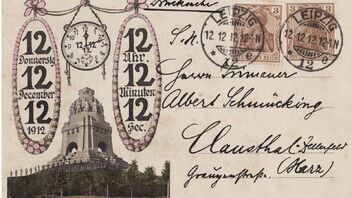 Drucksache
12
Donnerstg
12
December
12
1912
12
Uhr
12
Minuten
12
Sec.
LEIPZIG
12.12.12.12-1N
12
LEIPZIG
12.12.12.12-1N
12
3
3
S. H.
Herrn
Albert Schmücking
Clausthal-Zellerfeld
(Harz)